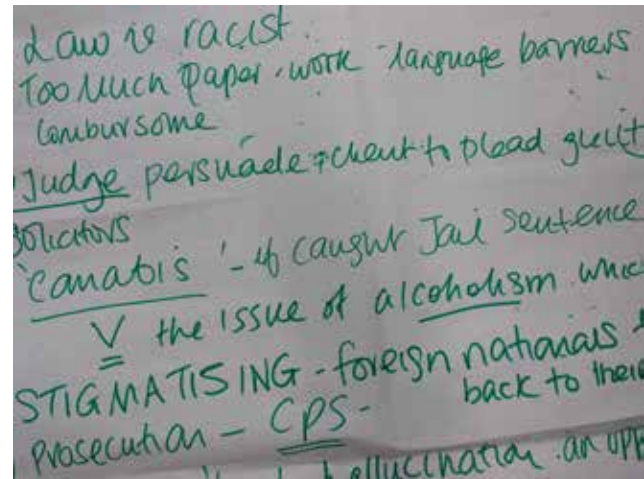 Law is racist.
Too Much Paper-work - language barriers
Combursome
Judge persuade client to plead guilt
Solicitors
'Canabis' - if caught Jail sentence
V the issue of alcoholism whic
STIGMATISING - foreign nationals
back to their
Prosecution - CPS -
hallucination an opp